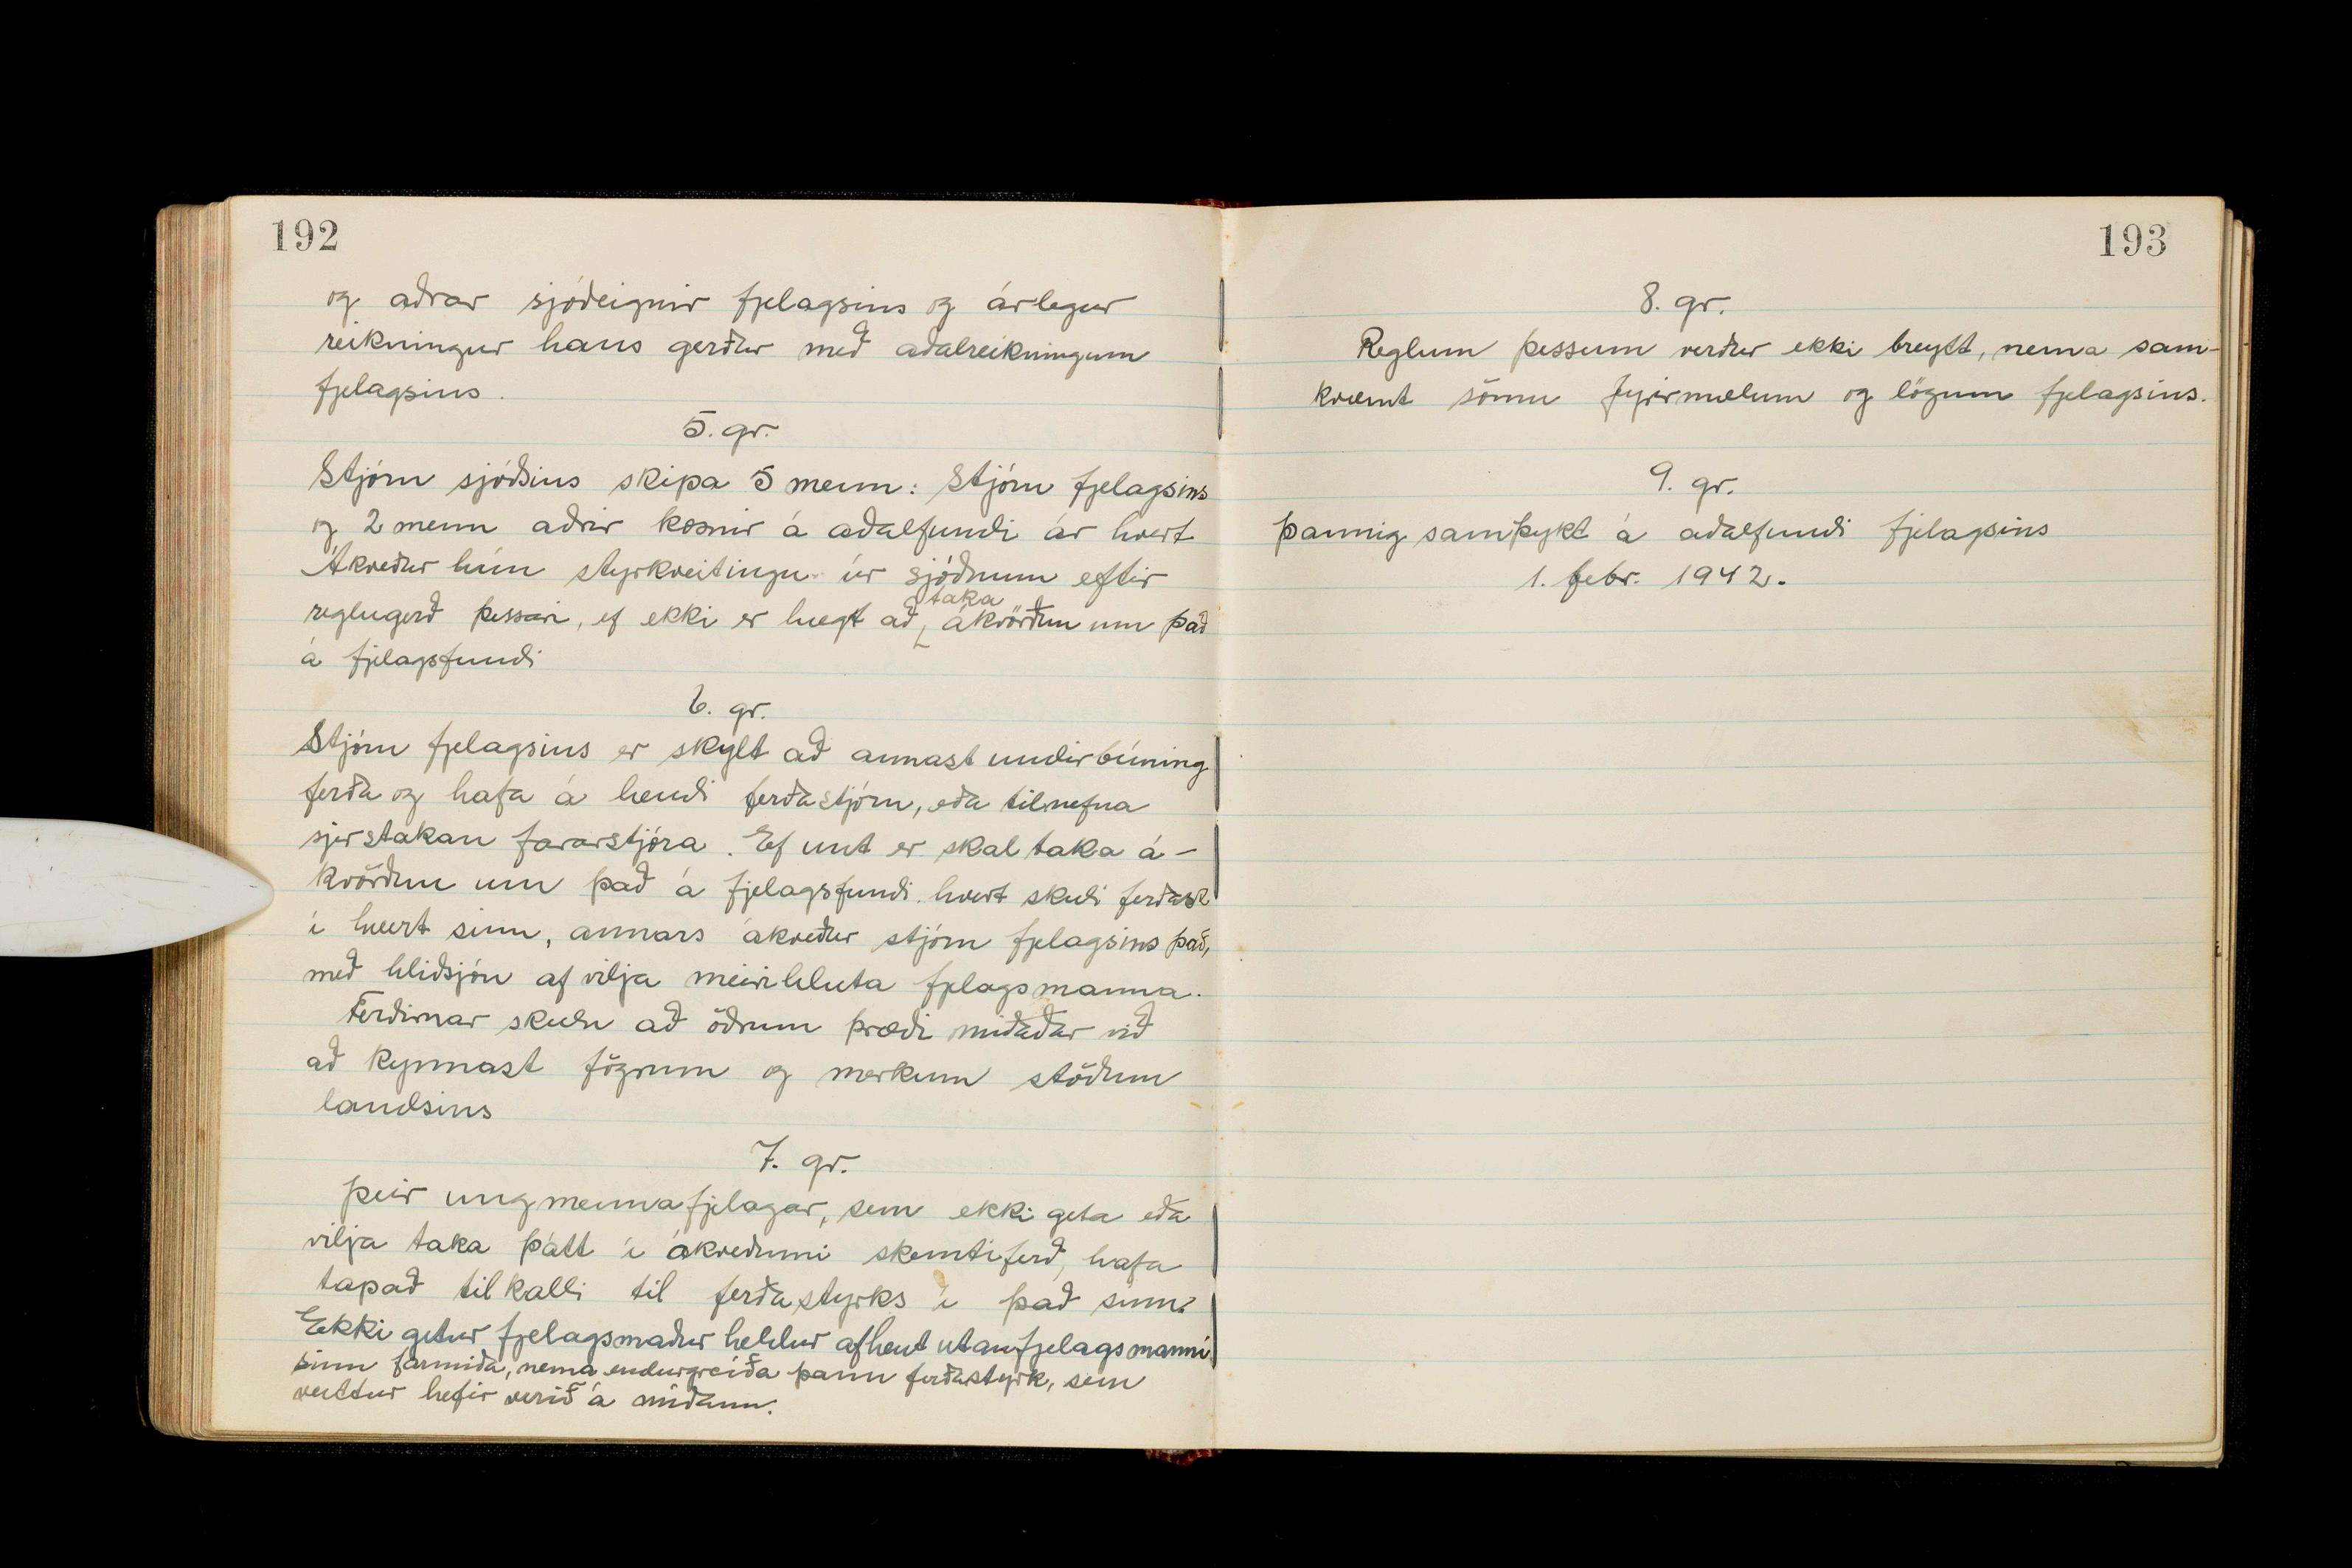 192
og aðrar sjóðeignir fjelagsins og árlegur
reikningur hans gerður með aðalreikningum
fjelagsins.
5. gr.
Stjórn sjóðsins skipa 5 menn: Stjórn fjelagsins
og 2 menn aðrir kosnir á aðalfundi ár hvert
Ákveður hún styrkveitingu úr sjóðnum eftir
taka
reglugerð þessari, ef ekki er hægt að ákvörðun um það
á fjelagsfundi
6. gr.
Stjórn fjelagsins er skylt að annast undirbúning
ferða og hafa á hendi ferðastjórn, eða tilnefna
sjerstakan fararstjóra. Ef unt er skal taka á-
kvörðun um það á fjelagsfundi hvert skuli ferðast
í hvert sinn, annars ákveður stjórn fjelagsins það,
með hliðsjón af vilja meirihluta fjelagsmanna.
Ferðirnar skulu að öðrum þræði miðaðar við
að kynnast fögrum og merkum stöðum
landsins
7. gr.
Þeir ungmennafjelagar, sem ekki geta eða
vilja taka þátt í ákveðinni skemtiferð, hafa
tapað tilkalli til ferðastyrks í það sinn.
Ekki getur fjelagsmaður heldur afhent utanfjelagsmanni
sinn farmiða, nema endurgreiða þann ferðastyrk, sem
veittur hefir verið á miðann.
193
8. gr.
Reglum þessum verður ekki breytt, nema sam-
kvæmt sömu fyrirmælum og lögum fjelagsins.
9. gr.
Þannig samþykt á aðalfundi fjelagsins
1. febr. 1942.